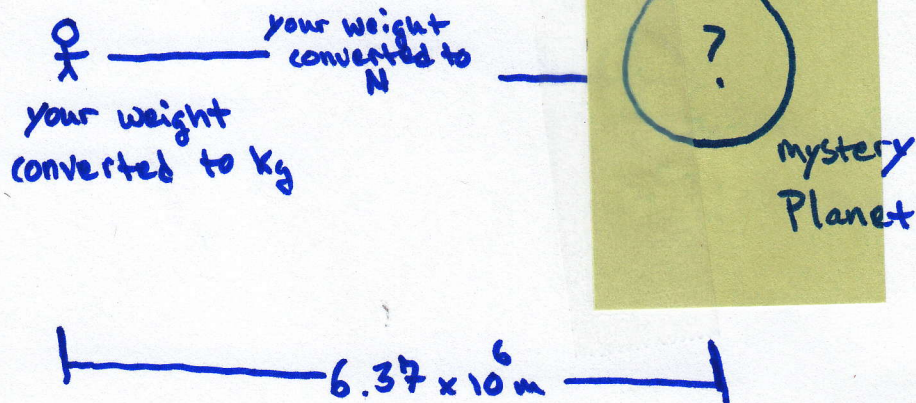 your weight
converted to
N
?
your weight
converted to kg
mystery
Planet
6.37 x 10⁶ m